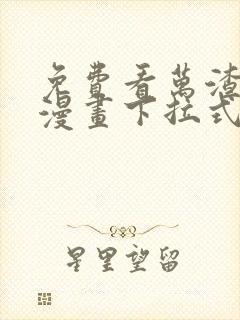 免費看萬渣
漫畫下拉式
星里望留